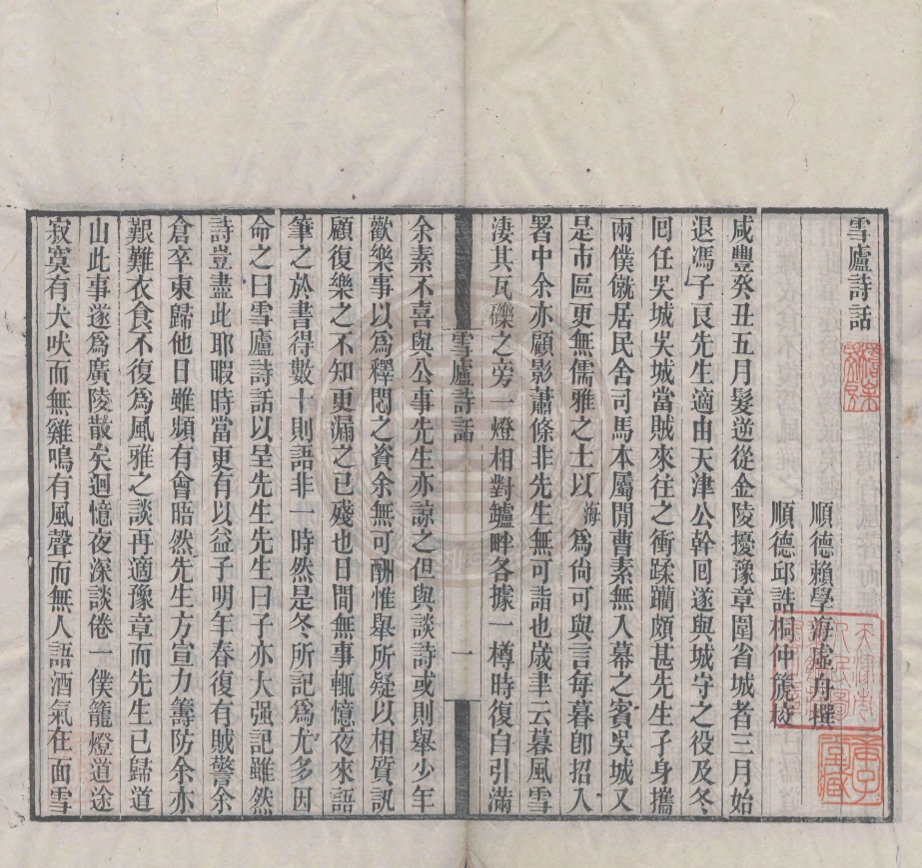 雪廬詩話
順德賴學海虛舟撰
順德邱誥桐仲篪校
咸豐癸丑五月髮逆從金陵擾豫章圍省城者三月始
退馮子良先生適由天津公幹囘遂與城守之役及冬
囘任吳城吳城當賊來往之衝蹂躪頗甚先生孑身攜
兩僕僦居民舍司馬本屬閒曹素無入幕之賓吳城又
是市區更無儒雅之士以海爲尙可與言每暮卽招入
署中余亦顧影蕭條非先生無可詣也歲聿云暮風雪
淒其瓦礫之旁一燈相對鑪畔各據一樽時復自引滿
雪廬詩話
一
余素不喜與公事先生亦諒之但與談詩或則舉少年
歡樂事以爲釋悶之資余無可酬惟舉所疑以相質訊
顧復樂之不知更漏之已殘也日間無事輒憶夜來語
筆之於書得數十則語非一時然是冬所記爲尤多因
命之曰雪廬詩話以呈先生先生曰子亦大强記雖然
詩豈盡此耶暇時當更有以益子明年春復有賊警余
倉卒東歸他日雖頻有會晤然先生方宣力籌防余亦
艱難衣食不復爲風雅之談再適豫章而先生已歸道
山此事遂爲廣陵散矣迴憶夜深談倦一僕籠燈道途
寂寞有犬吠而無雞鳴有風聲而無人語酒氣在面雪